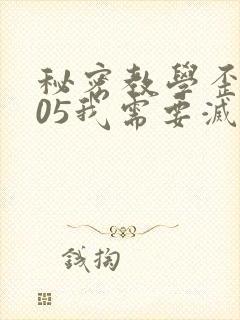 秘密教學歪
05我需要滅
錢掏